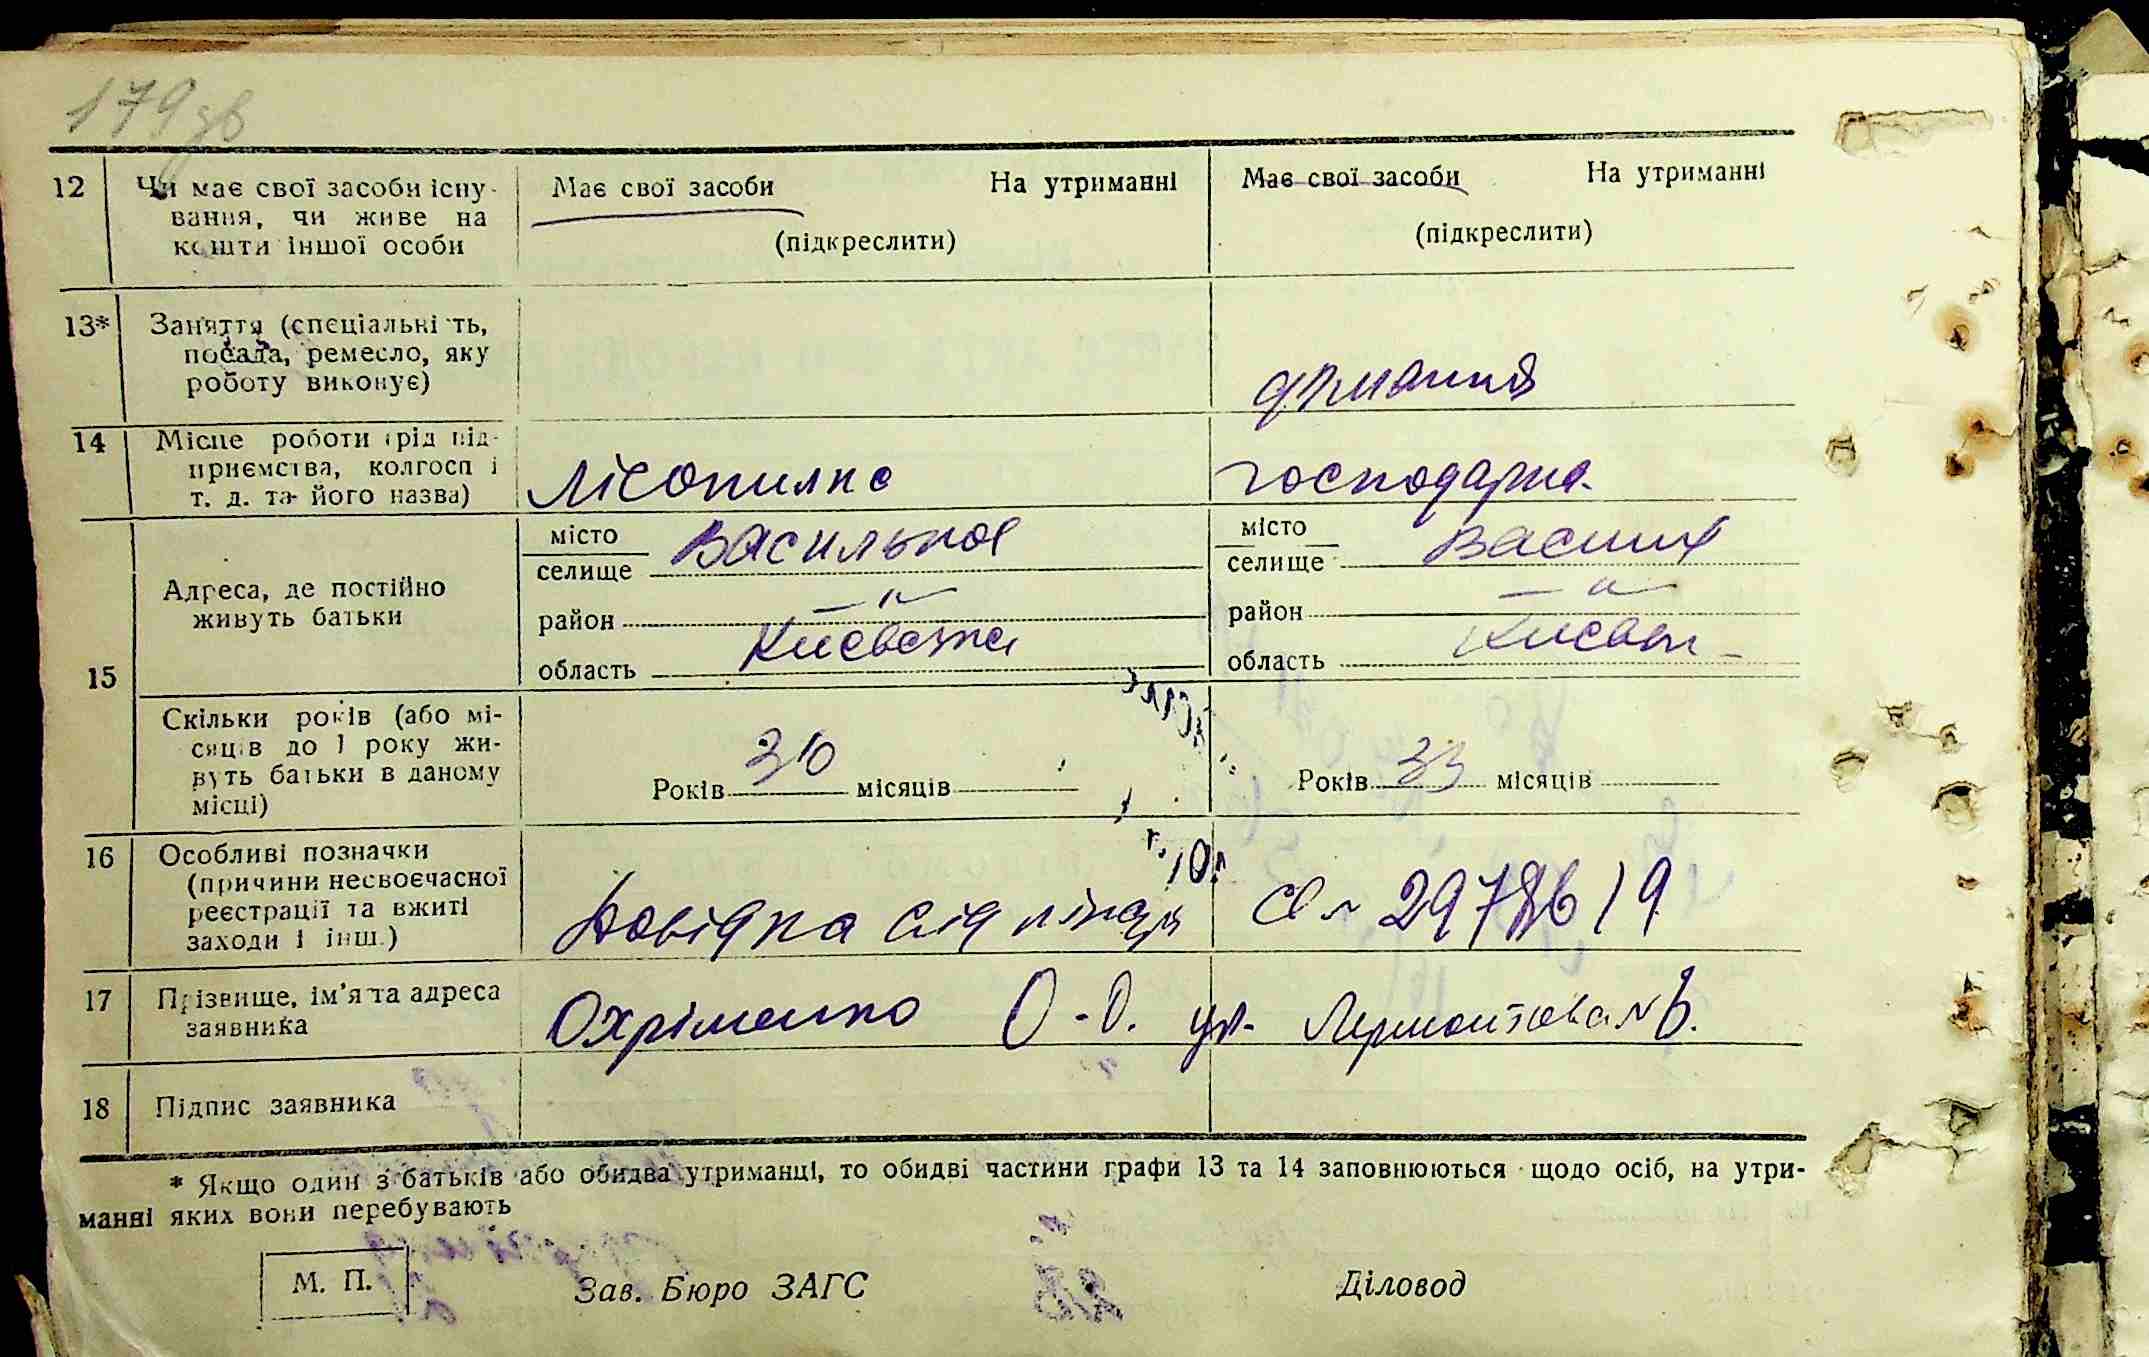 179зв
12
Чи має свої засоби існу-
вання, чи живе на
кошти іншої особи
Має свої засоби На утриманні
(підкреслити)
Має свої засоби На утриманні
(підкреслити)
13*
Заняття (спеціальність,
посада, ремесло, яку
роботу виконує)
14
Місце роботи (рід під-
приємства, колгосп і
т. д. та його назва)
господарка
15
Адреса, де постійно
живуть батьки
місто
селище
Васильков
район — " —
область Київська
місто
селище
Васильк
район — " —
область Київськ
Скільки років (або мі-
сяців до 1 року жи-
вуть батьки в даному
місці)
Років 30 місяців
Років 33 місяців
16
Особливі позначки
(причини несвоєчасної
реєстрації та вжиті
заходи і інш.)
Довідка від лікаря
17
Прізвище, ім'я та адреса
заявника
Охріменко О-О. ул. Лермонтова №
18
Підпис заявника
* Якщо один з батьків або обидва утриманці, то обидві частини графи 13 та 14 заповнюються щодо осіб, на утри-
манні яких вони перебувають
М. П.
Зав. Бюро ЗАГС
Діловод